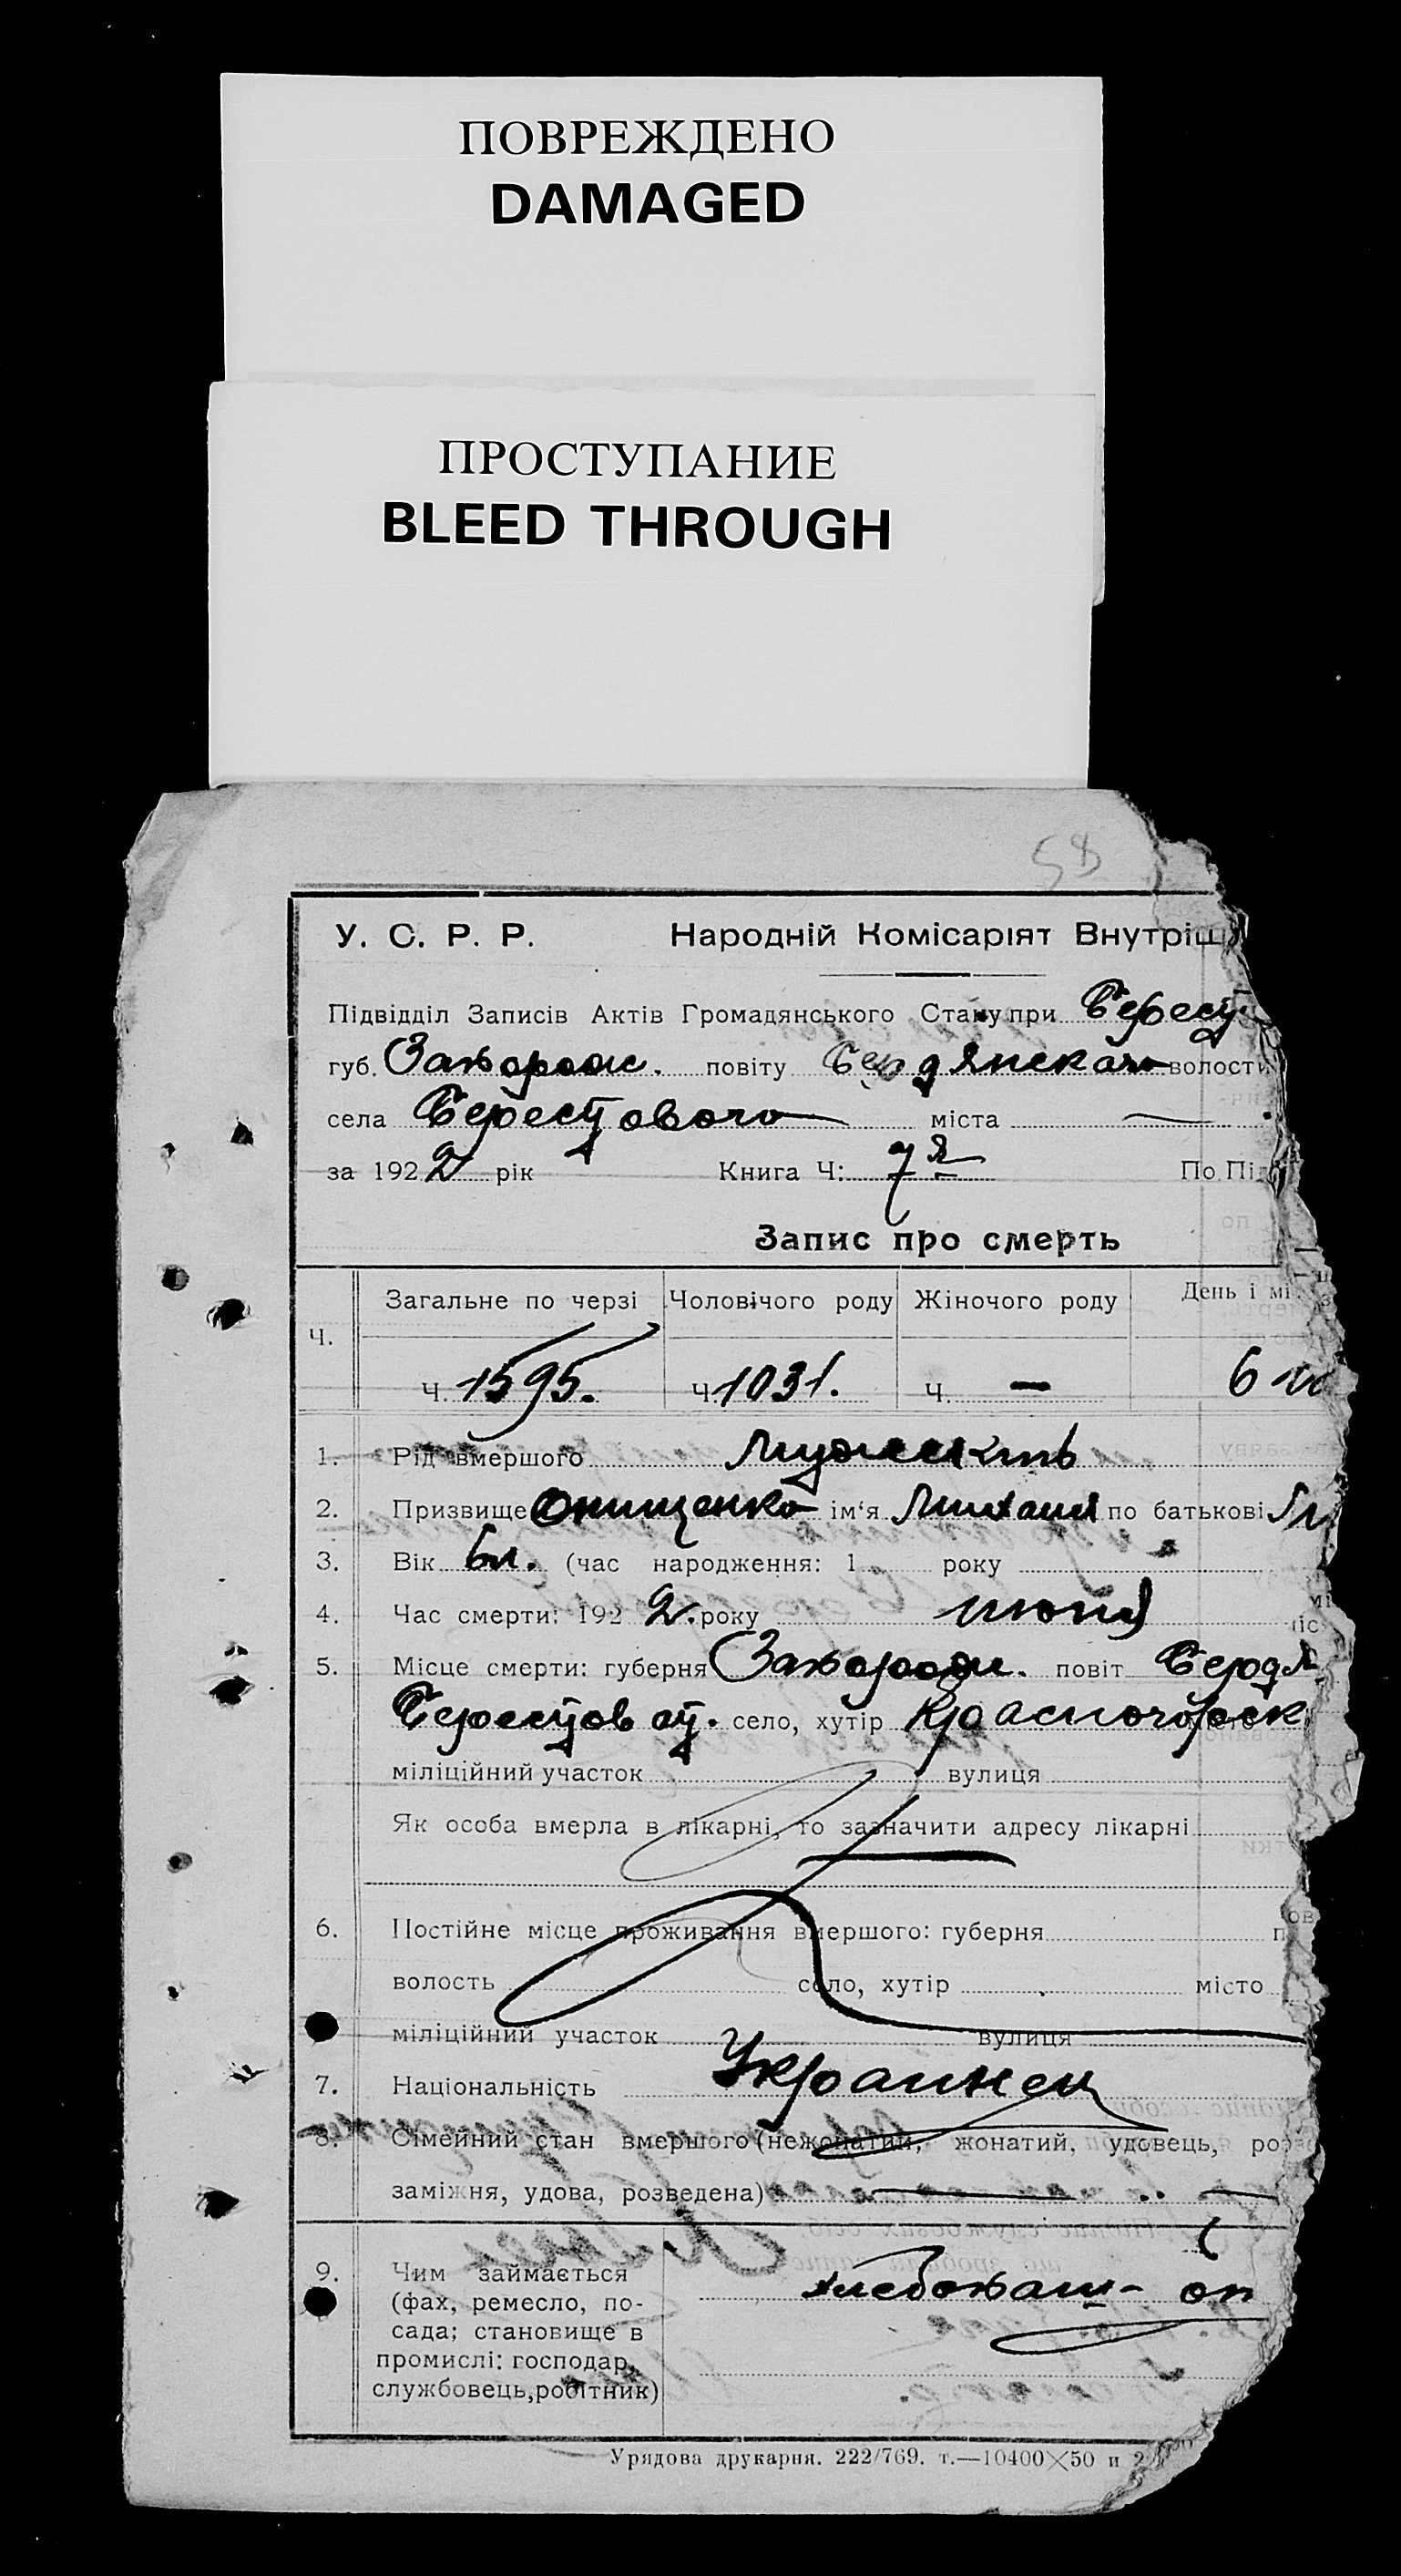 ПОВРЕЖДЕНО
DAMAGED
ПРОСТУПАНИЕ
BLEED THROUGH
58
У. С. Р. Р. Народній Комісаріят Внутріш
Підвідділ Записів Актів Громадянського Стану при Берест
губ. Запорож. повіту Бердянского волости
села Берестового міста —
за 1922 рік Книга Ч: 7я По Пі
Запис про смерть
Ч. Загальне по черзі Чоловічого роду Жіночого роду День і мі
Ч. 1595. Ч. 1031. Ч. — 6
1. Рід вмершого
2. Призвище Онищенко ім'я Михаил по батькові
3. Вік 6л. (час народження: 1 року
4. Час смерти: 1922. року июня
5. Місце смерти: губерня Запорож. повіт Бердя
Берестов село, хутір Красногорск
міліційний участок вулиця
Як особа вмерла в лікарні, то зазначити адресу лікарні
6. Постійне місце проживання вмершого: губерня
волость село, хутір місто
міліційний участок вулиця
7. Національність Украинец
8. Сімейний стан вмершого (нежонатий, жонатий, удовець, роз
заміжня, удова, розведена)
9. Чим займається хлебопаш- оп
(фах, ремесло, по-
сада; становище в
промислі: господар,
службовець, робітник)
Урядова друкарня. 222/769. т.—10400×50 и 2